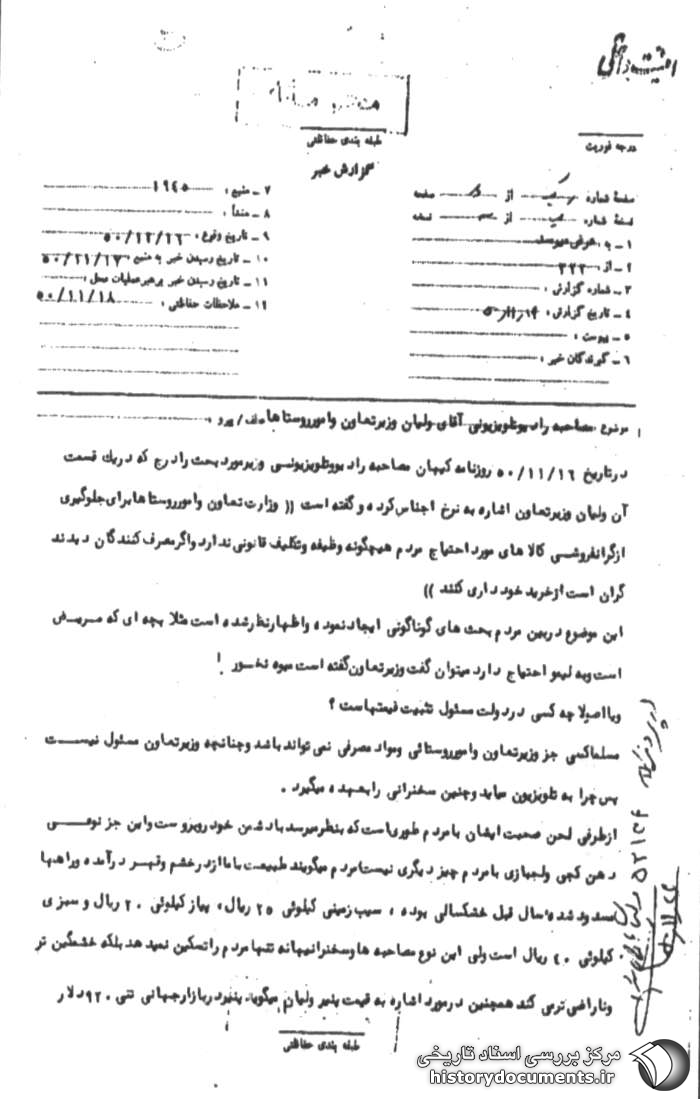 درجه فوریت
طبقه بندی حفاظتی
گزارش خبر
صفحهٔ شماره از صفحه
نسخهٔ شماره از نسخه
۱ ـ به : عرض میرسد
۲ ـ از : ۳۲۲
۳ ـ شماره گزارش :
۴ ـ تاریخ گزارش :
۵ ـ پیوست :
۶ ـ گیرندگان خبر :
۷ ـ منبع : ۱۹۴۵
۸ ـ منشأ :
۹ ـ تاریخ وقوع :
۱۰ ـ تاریخ رسیدن خبر به منبع
۱۱ ـ تاریخ رسیدن خبر برهبر عملیات محل :
۱۲ ـ ملاحظات حفاظتی : ۵۰/۱۱/۱۸
موضوع مصاحبه رادیوتلویزیونی آقای ولیان وزیرتعاون وامورروستاها
درتاریخ ۵۰/۱۱/۱۶ روزنامه کیهان مصاحبه رادیووتلویزیونی وزیرمورد بحث رادرج که دریک قسمت
آن ولیان وزیرتعاون اشاره به نرخ اجناس کرده وگفته است (( وزارت تعاون وامورروستاها برای جلوگیری
ازگرانفروشی کالا های مورد احتیاج مردم هیچگونه وظیفه وتکلیف قانونی ندارد واگرمصرف کنندگان دیدند
گران است ازخرید خود داری کنند ))
این موضوع دربین مردم بحث های گوناگونی ایجادنموده واظهارنظرشده است مثلا بچه ای که مریض
است وبه لیمو احتیاج دارد میتوان گفت وزیرتعاون گفته است میوه نخور !
ویااصیلا چه کسی دردولت مسئول تثبیت قیمتهاست ؟
مسلماکسی جز وزیرتعاون وامورروستائی ومواد مصرفی نمی تواند باشد وچنانچه وزیرتعاون مسئول نیست
پس چرا به تلویزیون میاید وچنین سخنرانی رابعهده میگیرد .
ازطرفی لحن صحبت ایشان بامردم طوری است که بنظرمیرسد بادشمن خود روبروست واین جز نوعی
دهن کجی ولجبازی بامردم چیز دیگری نیست مردم میگویند طبیعت باما ازدرخشم وقهر درآمده وراهها
مسدود شده سال قبل خشکسالی بوده ، سیب زمینی کیلوئی ۲۵ ریال ، پیاز کیلوئی ۲۰ ریال و سبزی
کیلوئی ۴۰ ریال است ولی این نوع مصاحبه ها وسخنرانیهانه تنها مردم راتسکین نمید هد بلکه خشمگین تر
وناراضی ترمی کند همچنین درمورد اشاره به قیمت پنیر ولیان میگوید پنیردربازارجهانی تنی ۹۲۰دلار
طبقه بندی حفاظتی
مرکز بررسی اسناد تاریخی
historydocuments.ir